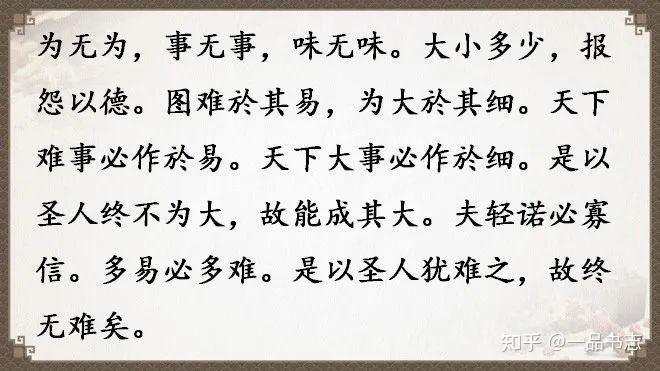 为无为，事无事，味无味。大小多少，报
怨以德。图难於其易，为大於其细。天下
难事必作於易。天下大事必作於细。是以
圣人终不为大，故能成其大。夫轻诺必寡
信。多易必多难。是以圣人犹难之，故终
无难矣。
知乎 @一品书志